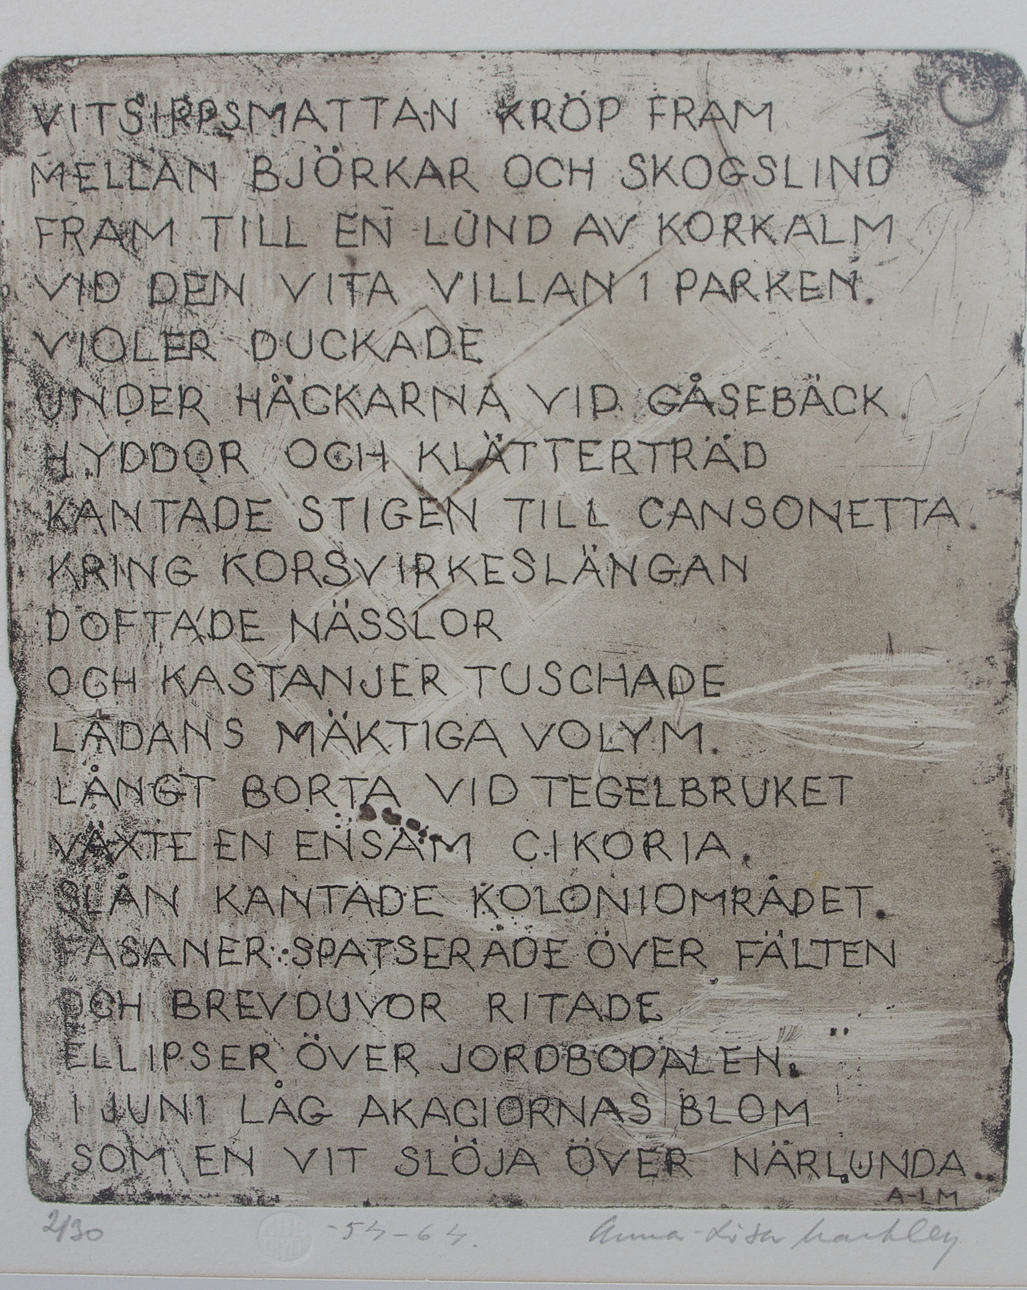 VITSIPPSMATTAN KRÖP FRAM
MELLAN BJÖRKAR OCH SKOGSLIND
FRAM TILL EN LUND AV KORKALM
VID DEN VITA VILLAN I PARKEN.
VIOLER DUCKADE
UNDER HÄCKARNA VID GÅSEBÄCK.
HYDDOR OCH KLÄTTERTRÄD
KANTADE STIGEN TILL CANSONETTA.
KRING KORSVIRKESLÄNGAN
DOFTADE NÄSSLOR
OCH KASTANJER TUSCHADE
LADANS MÄKTIGA VOLYM.
LÅNGT BORTA VID TEGELBRUKET
VÄXTE EN ENSAM CIKORIA.
SLÅN KANTADE KOLONIOMRÅDET.
FASANER SPATSERADE ÖVER FÄLTEN
OCH BREVDUVOR RITADE
ELLIPSER ÖVER JORDBODALEN.
I JUNI LÅG AKACIORNAS BLOM
SOM EN VIT SLÖJA ÖVER NÄRLUNDA.
A-LM
2/30 -54-64. Anna-Lisa